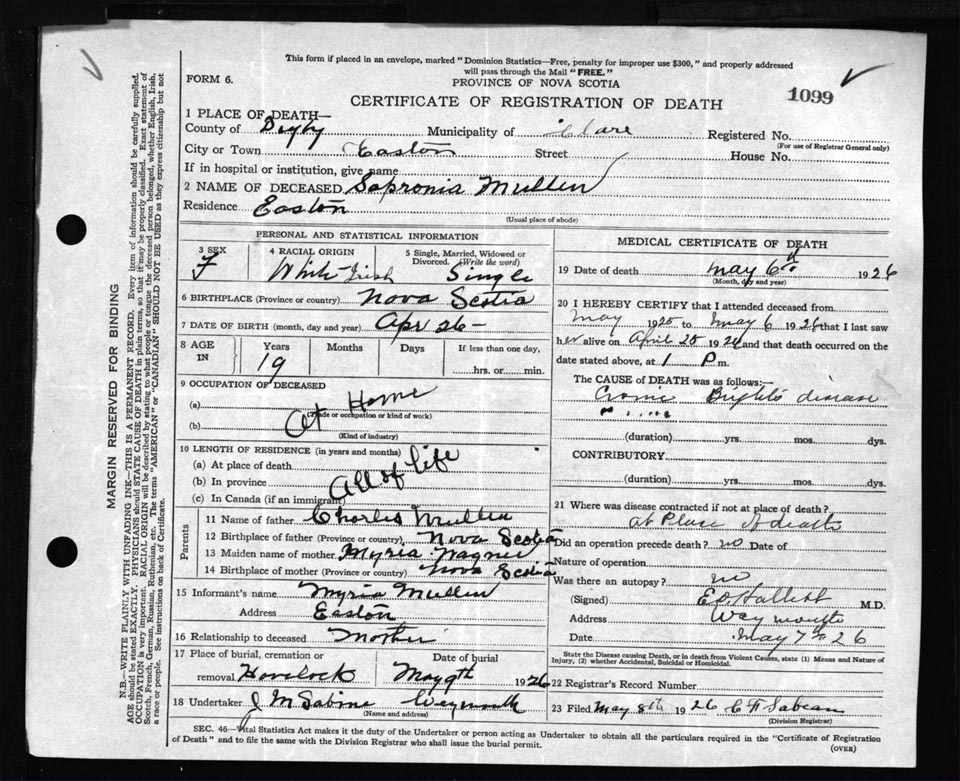 This form if placed in an envelope, marked "Dominion Statistics—Free, penalty for improper use $300," and properly addressed
will pass through the Mail "FREE."
FORM 6.
PROVINCE OF NOVA SCOTIA
CERTIFICATE OF REGISTRATION OF DEATH
1099
1 PLACE OF DEATH—
County of Digby Municipality of Clare Registered No.
(For use of Registrar General only)
City or Town Easton Street House No.
If in hospital or institution, give name
2 NAME OF DECEASED Sapronia Mullen
Residence Easton
(Usual place of abode)
PERSONAL AND STATISTICAL INFORMATION
3 SEX 4 RACIAL ORIGIN 5 Single, Married, Widowed or
Divorced. (Write the word)
F White Irish Single
6 BIRTHPLACE (Province or country) Nova Scotia
7 DATE OF BIRTH (month, day and year) Apr 26 -
8 AGE IN Years Months Days If less than one day,
19 hrs. or min.
9 OCCUPATION OF DECEASED
(a) At Home
(Trade or occupation or kind of work)
(b)
(Kind of industry)
10 LENGTH OF RESIDENCE (in years and months)
(a) At place of death
(b) In province All of life
(c) In Canada (if an immigrant)
Parents
11 Name of father Charles Mullen
12 Birthplace of father (Province or country) Nova Scotia
13 Maiden name of mother Myria Wagner
14 Birthplace of mother (Province or country) Nova Scotia
15 Informant's name Myria Mullen
Address Easton
16 Relationship to deceased Mother
17 Place of burial, cremation or Date of burial
removal Havelock May 9th 1926
18 Undertaker J M Sabine Weymouth
(Name and address)
MEDICAL CERTIFICATE OF DEATH
19 Date of death May 6th 1926
(Month, day and year)
20 I HEREBY CERTIFY that I attended deceased from
May 1925 to May 6 1926 that I last saw
her alive on April 25 1926 and that death occurred on the
date stated above, at 1 P m.
The CAUSE of DEATH was as follows:—
Cronic Bright's disease
(duration) yrs. mos. dys.
CONTRIBUTORY
(duration) yrs. mos. dys.
21 Where was disease contracted if not at place of death?
at Place of death
Did an operation precede death? no Date of
Nature of operation
Was there an autopsy? no
(Signed) E O Hallett M.D.
Address Weymouth
Date May 7th 26
State the Disease causing Death, or in death from Violent Causes, state (1) Means and Nature of
Injury, (2) whether Accidental, Suicidal or Homicidal.
22 Registrar's Record Number
23 Filed May 8th 1926 C F Sabean
(Division Registrar)
SEC. 46—Vital Statistics Act makes it the duty of the Undertaker or person acting as Undertaker to obtain all the particulars required in the "Certificate of Registration
of Death" and to file the same with the Division Registrar who shall issue the burial permit.
(OVER)
MARGIN RESERVED FOR BINDING
N.B.—WRITE PLAINLY WITH UNFADING INK—THIS IS A PERMANENT RECORD. Every item of information should be carefully supplied.
AGE should be stated EXACTLY. PHYSICIANS should STATE CAUSE OF DEATH in plain terms, so that it may be properly classified. Exact statement of
OCCUPATION is very important. RACIAL ORIGIN will be described by stating to what people or tongue the deceased person belonged, whether English, Irish,
Scotch, French, German, Russian, Ruthenian, etc. The terms "AMERICAN" or "CANADIAN" SHOULD NOT BE USED as they express citizenship but not
a race or people. See instructions on back of Certificate.